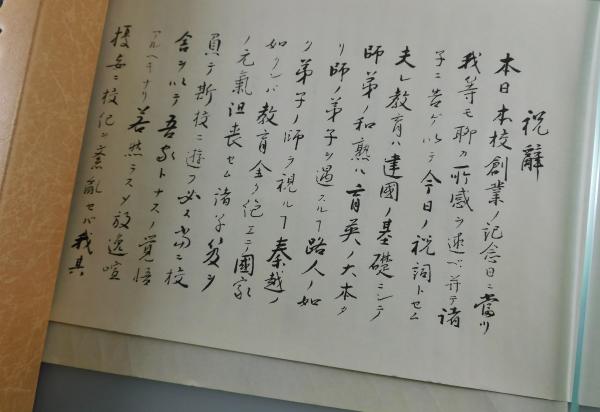 祝辭
本日本校創業ノ記念日ニ當リ
我等モ聊カ所感ヲ述ベ并テ諸
子ニ告ゲ以テ今日ノ祝詞トセム
夫レ教育ハ建國ノ基礎ニシテ
師弟ノ和熟ハ育英ノ大本タ
リ師ノ弟子ヲ遇スルヿ路人ノ如
ク弟子ノ師ヲ視ルヿ秦越ノ
如クンバ教育全ク絶エテ國家
ノ元氣沮喪セム諸子笈ヲ
負テ斯校ニ遊フ必ス當ニ校
舎ヲ以テ吾家トナスノ覚悟
アルヘキナリ若然ラスシテ放逸喧
擾妄ニ校紀ヲ紊亂セバ我其